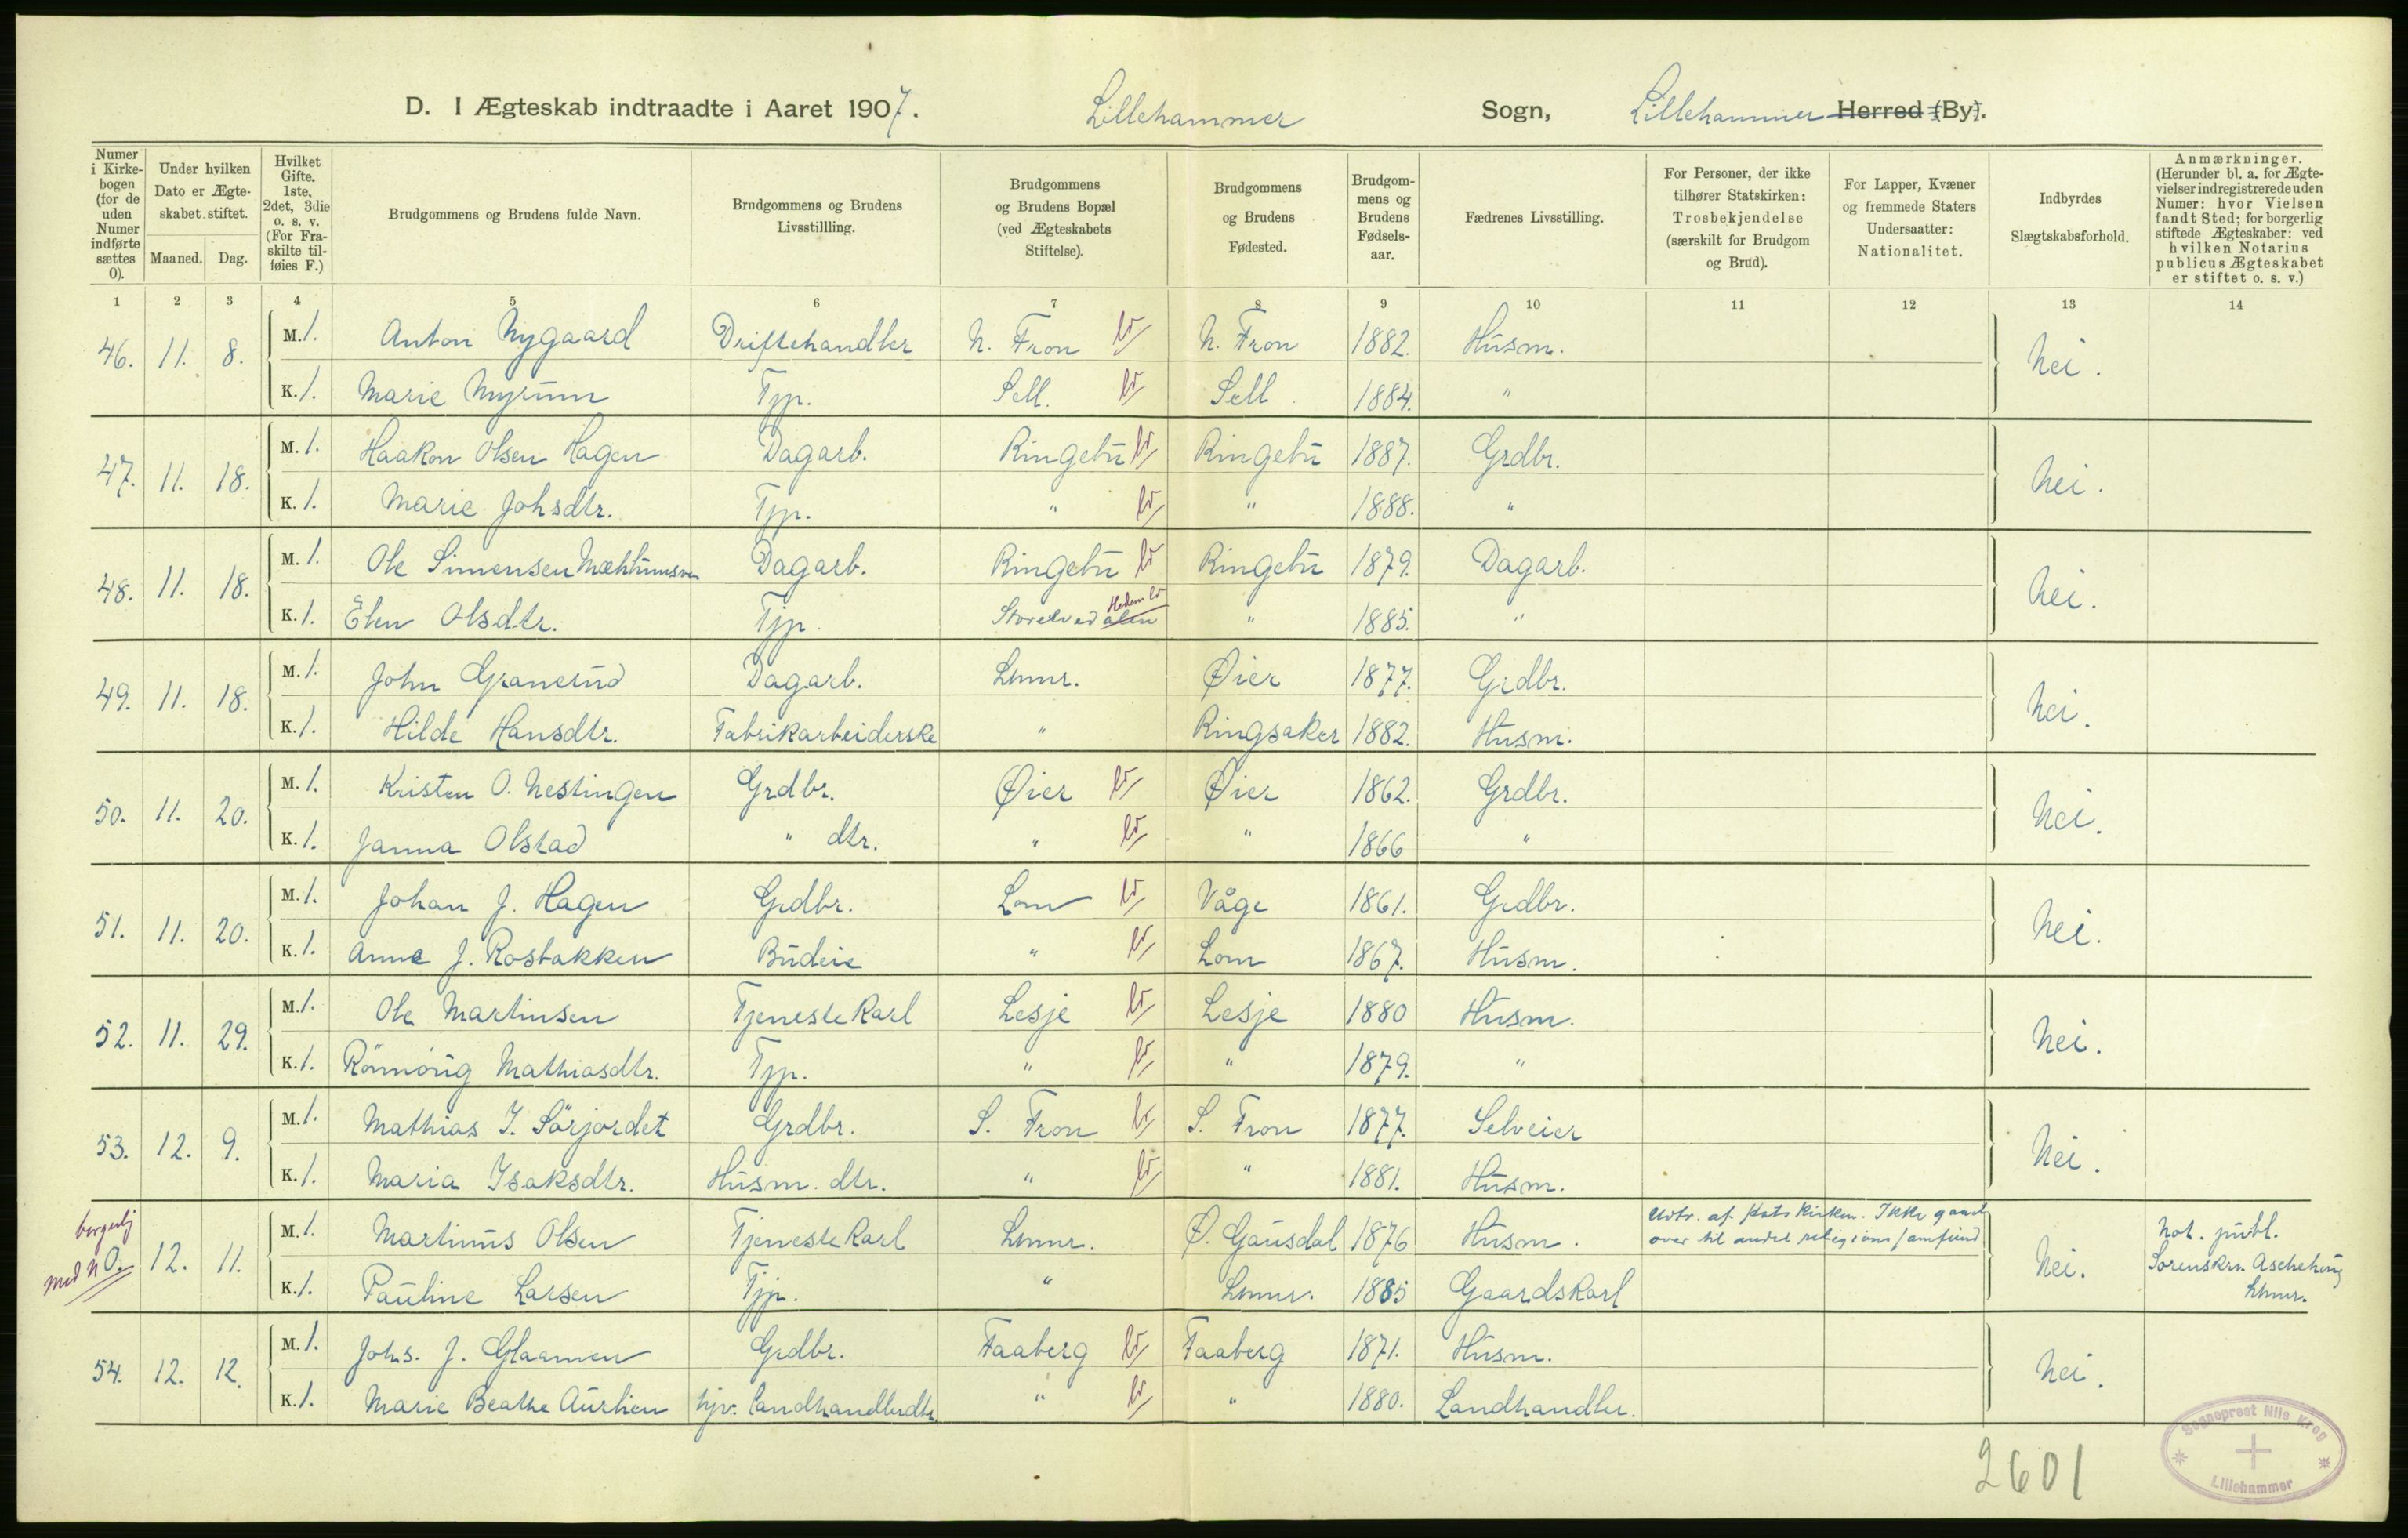 D. I Ægteskab indtraadte i Aaret 1907. Lillehammer Sogn, Lillehammer Herred (By).
Numer i Kirkebogen (for de uden Numer indførte sættes 0).
Under hvilken Dato er Ægteskabet stiftet.
Maaned. Dag.
Hvilket Gifte. 1ste, 2det, 3die o. s. v. (For Fraskilte tilføies F.)
Brudgommens og Brudens fulde Navn.
Brudgommens og Brudens Livsstillling.
Brudgommens og Brudens Bopæl (ved Ægteskabets Stiftelse).
Brudgommens og Brudens Fødested.
Brudgommens og Brudens Fødselsaar.
Fædrenes Livsstilling.
For Personer, der ikke tilhører Statskirken: Trosbekjendelse (særskilt for Brudgom og Brud).
For Lapper, Kvæner og fremmede Staters Undersaatter: Nationalitet.
Indbyrdes Slægtskabsforhold.
Anmærkninger. (Herunder bl. a. for Ægtevielser indregistrerede uden Numer: hvor Vielsen fandt Sted; for borgerlig stiftede Ægteskaber: ved hvilken Notarius publicus Ægteskabet er stiftet o. s. v.)
1 2 3 4 5 6 7 8 9 10 11 12 13 14
46. 11. 8. M. 1. Anton Nygaard Driftehandler N. Fron N. Fron 1882. Husm. Nei.
K. 1. Marie Myrum Tjp. Sell. Sell 1884. "
47. 11. 18. M. 1. Haakon Olsen Hagen Dagarb. Ringebu Ringebu 1887. Grdbr. Nei.
K. 1. Marie Johsdtr. Tjp. " " 1888. "
48. 11. 18. M. 1. Ole Simensen Dagarb. Ringebu Ringebu 1879. Dagarb. Nei.
K. 1. Elen Olsdtr. Tjp. Storelvedalen Hedem " 1885. "
49. 11. 18. M. 1. John Granerud Dagarb. Lhmr. Øier 1877. Grdbr. Nei.
K. 1. Hilde Hansdtr. Fabrikarbeiderske " Ringsaker 1882. Husm.
50. 11. 20. M. 1. Kristen O. Nestingen Grdbr. Øier Øier 1862. Grdbr. Nei.
K. 1. Janna Olstad " dtr. " " 1866 "
51. 11. 20. M. 1. Johan J. Hagen Grdbr. Lom Våge 1861. Grdbr. Nei.
K. 1. Anne J. Rosbakken Budeie " Lom 1867. Husm.
52. 11. 29. M. 1. Ole Martinsen Tjenestekarl Lesje Lesje 1880 Husm. Nei.
K. 1. Rönnöug Mathiasdtr. Tjp. " " 1879. "
53. 12. 9. M. 1. Mathias I. Sörjordet Grdbr. S. Fron S. Fron 1877. Selveier Nei.
K. 1. Maria Isaksdtr. Husm. dtr. " " 1881. Husm.
borgerlig
med n 0. 12. 11. M. 1. Martinus Olsen Tjenestekarl Lhmr. Ø. Gausdal 1876 Husm. Udtr. af statskirken. Ikke gaaet over til andet religionssamfund Nei. Not. publ. Sorenskr. Aschehoug Lhmr.
K. 1. Pauline Larsen Tjp. " Lhmr. 1885 Gaardskarl
54. 12. 12. M. 1. Johs. J. Glaamen Grdbr. Faaberg Faaberg 1871. Husm. Nei.
K. 1. Marie Beathe Aurlien hjv. landhandlerdtr. " " 1880. Landhandler.
2601
Sogneprest Nils Krog
Lillehammer